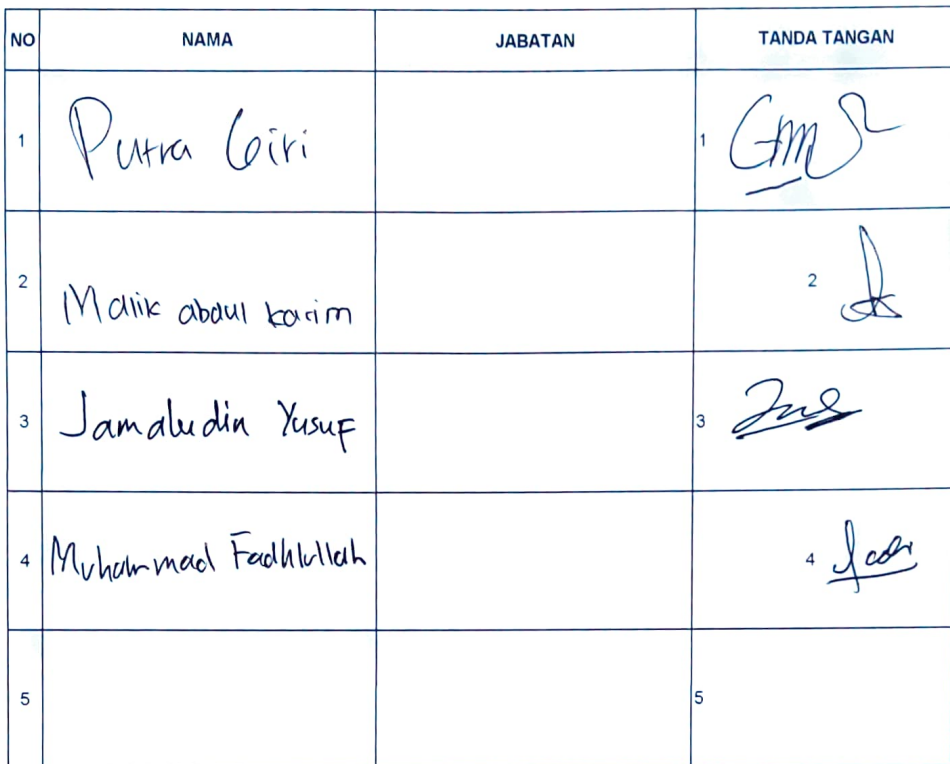 NO NAMA JABATAN TANDA TANGAN
1 Putra Giri 1
2 Malik abdul karim 2
3 Jamaludin Yusuf 3
4 Muhammad Fadhlullah 4
5 5